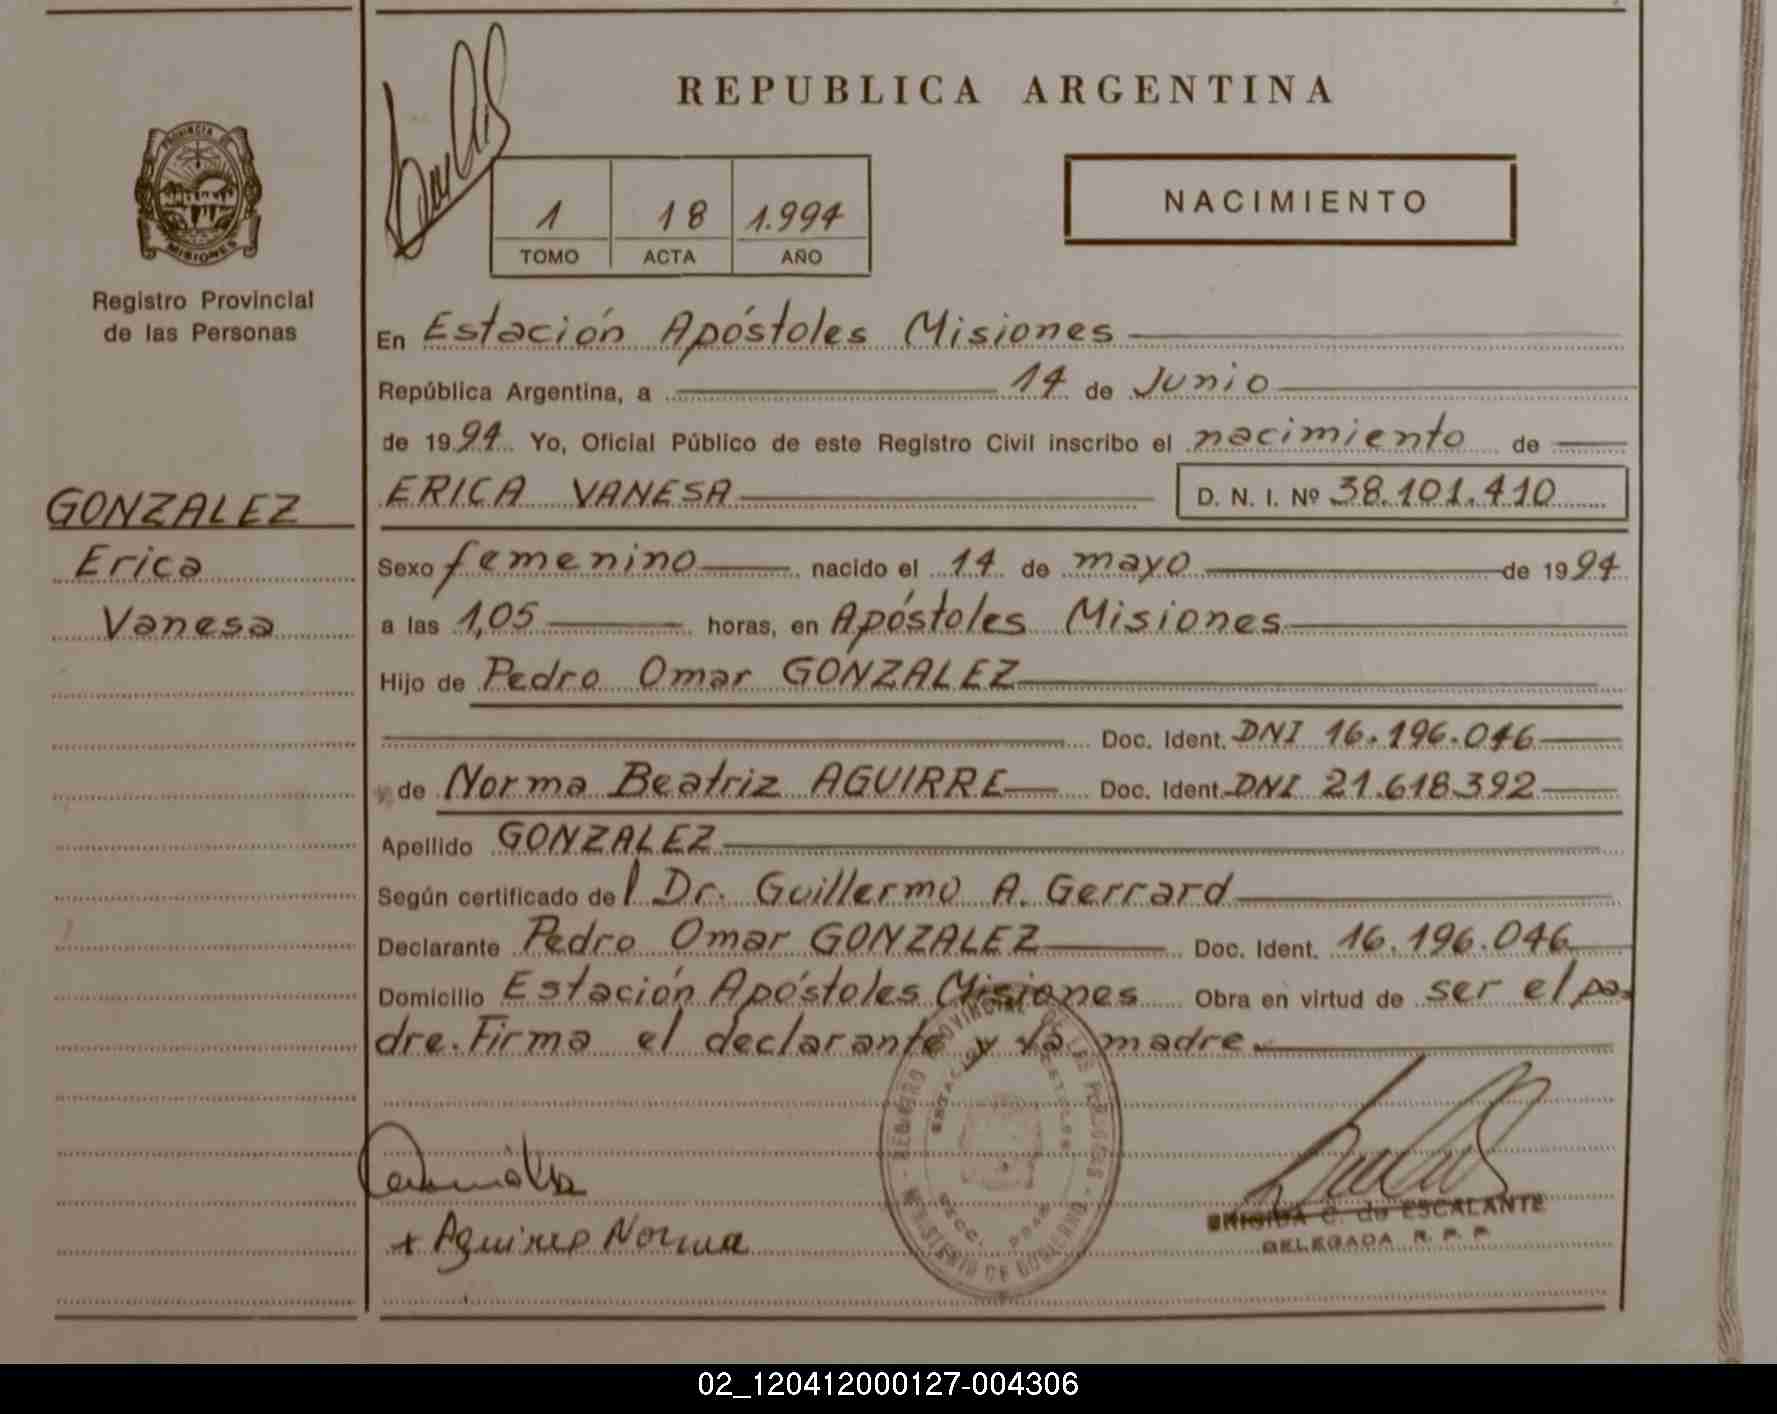 REPUBLICA ARGENTINA
PROVINCIA
MISIONES
Registro Provincial
de las Personas
1 18 1.994
TOMO ACTA AÑO
NACIMIENTO
En Estación Apóstoles Misiones
República Argentina, a 14 de Junio
de 1994 Yo, Oficial Público de este Registro Civil inscribo el nacimiento de
GONZALEZ
Erica
Vanesa
ERICA VANESA D. N. I. Nº 38.101.410
Sexo femenino nacido el 14 de mayo de 1994
a las 1,05 horas, en Apóstoles Misiones
Hijo de Pedro Omar GONZALEZ
Doc. Ident. DNI 16.196.046
y de Norma Beatriz AGUIRRE Doc. Ident. DNI 21.618.392
Apellido GONZALEZ
Según certificado del Dr. Guillermo A. Gerrard
Declarante Pedro Omar GONZALEZ Doc. Ident. 16.196.046
Domicilio Estación Apóstoles Misiones Obra en virtud de ser el pa
dre. Firma el declarante y la madre.
REGISTRO PROVINCIAL DE LAS PERSONAS - MINISTERIO DE GOBIERNO -
ESTACION APOSTOLES
SECC.
+ Aguirre Norma
BRIGIDA C. de ESCALANTE
DELEGADA R. P. P.
02_120412000127-004306